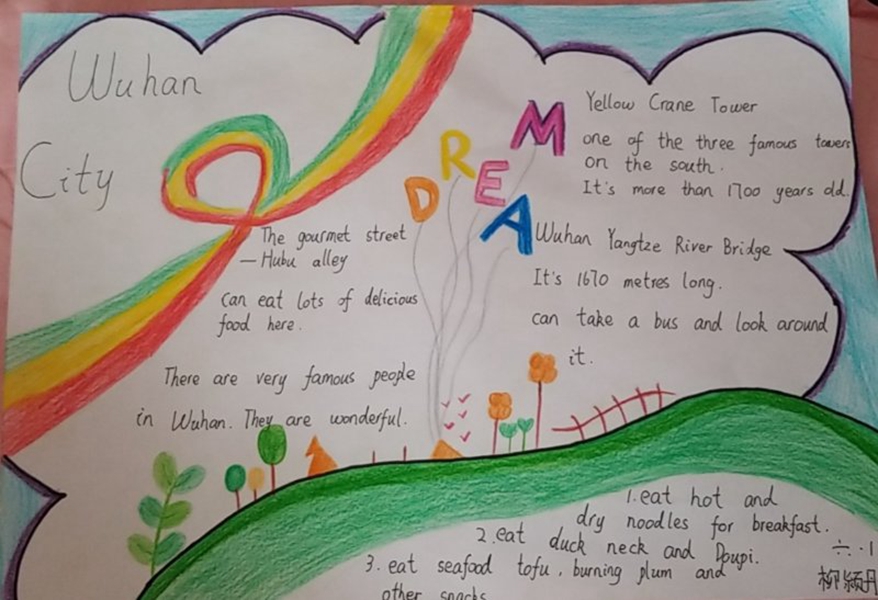 Wuhan
City
DREAM
Yellow Crane Tower
one of the three famous towers
on the south.
It's more than 1700 years old.
The gourmet street
— Hubu alley
can eat lots of delicious
food here.
Wuhan Yangtze River Bridge
It's 1670 metres long.
can take a bus and look around
it.
There are very famous people
in Wuhan. They are wonderful.
1.eat hot and
dry noodles for breakfast.
2.eat duck neck and Doupi.
3. eat seafood tofu, burning plum and
other snacks
六.1
柳颍丹